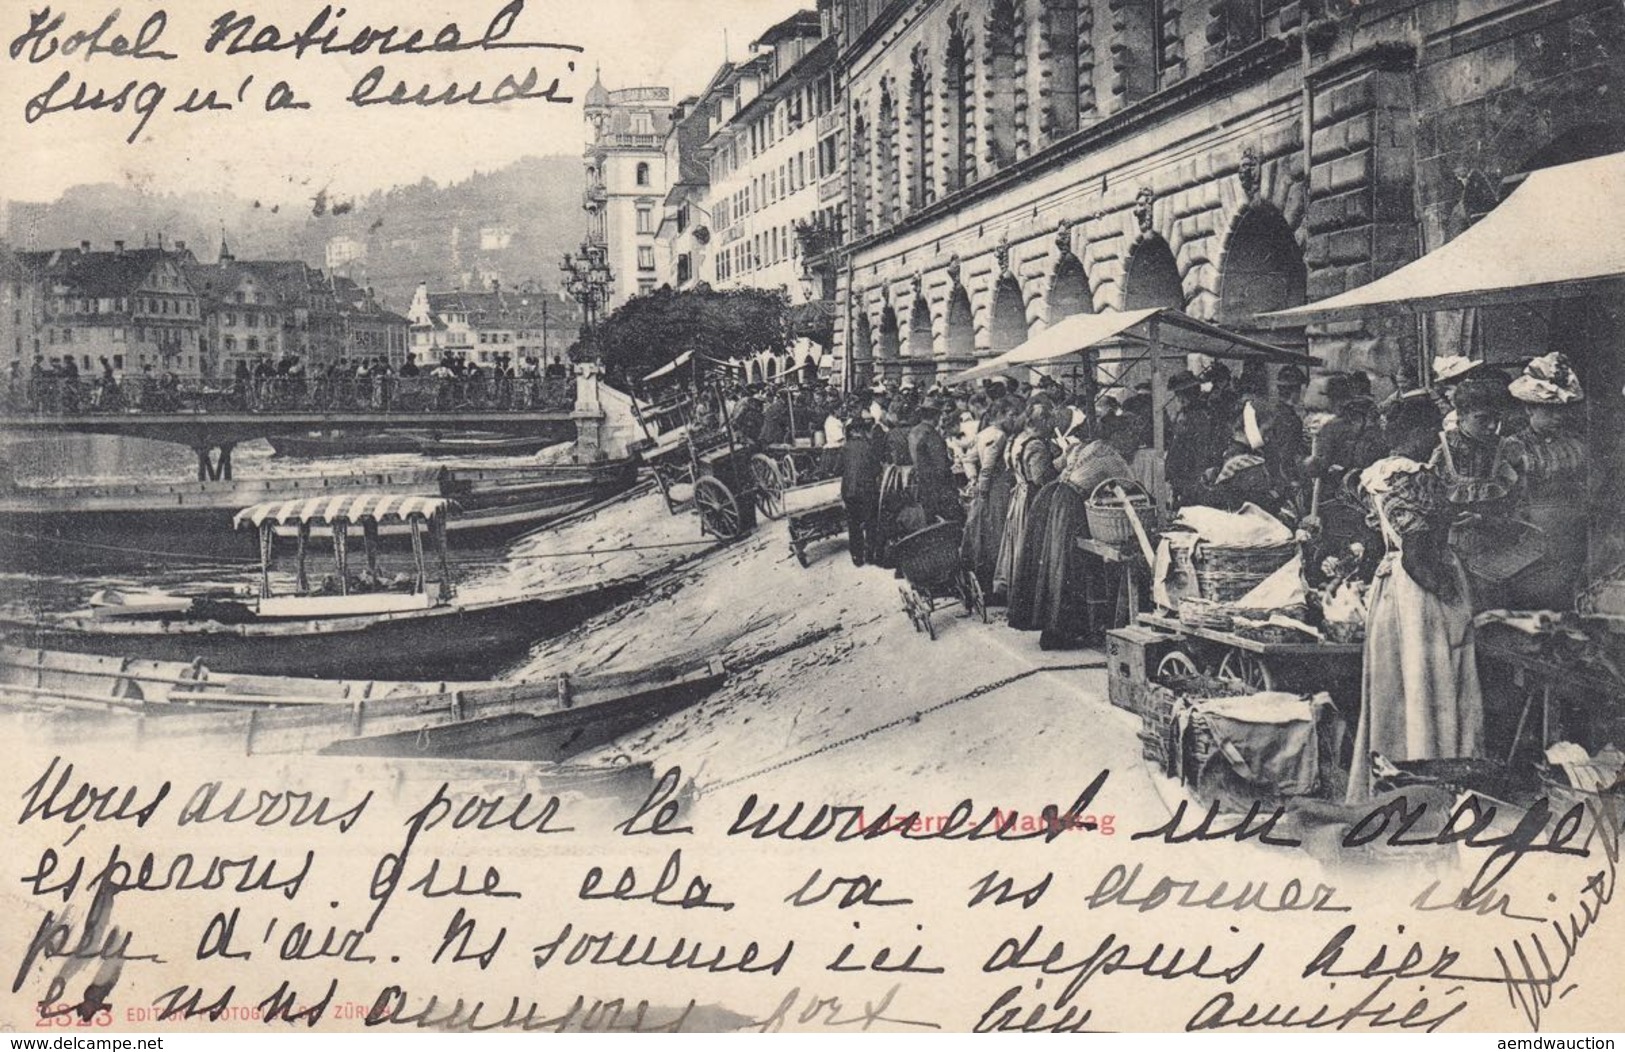 Hotel National
Jusqu'à lundi
Luzern - Markttag
Nous avons pour le moment un orage
espérons que cela va ns donner un
peu d'air. Ns sommes ici depuis hier
et ns ns amusons fort bien Amitiés
2323 EDITION PHOTOGLOB CO ZÜRICH
www.delcampe.net
aemdwauction